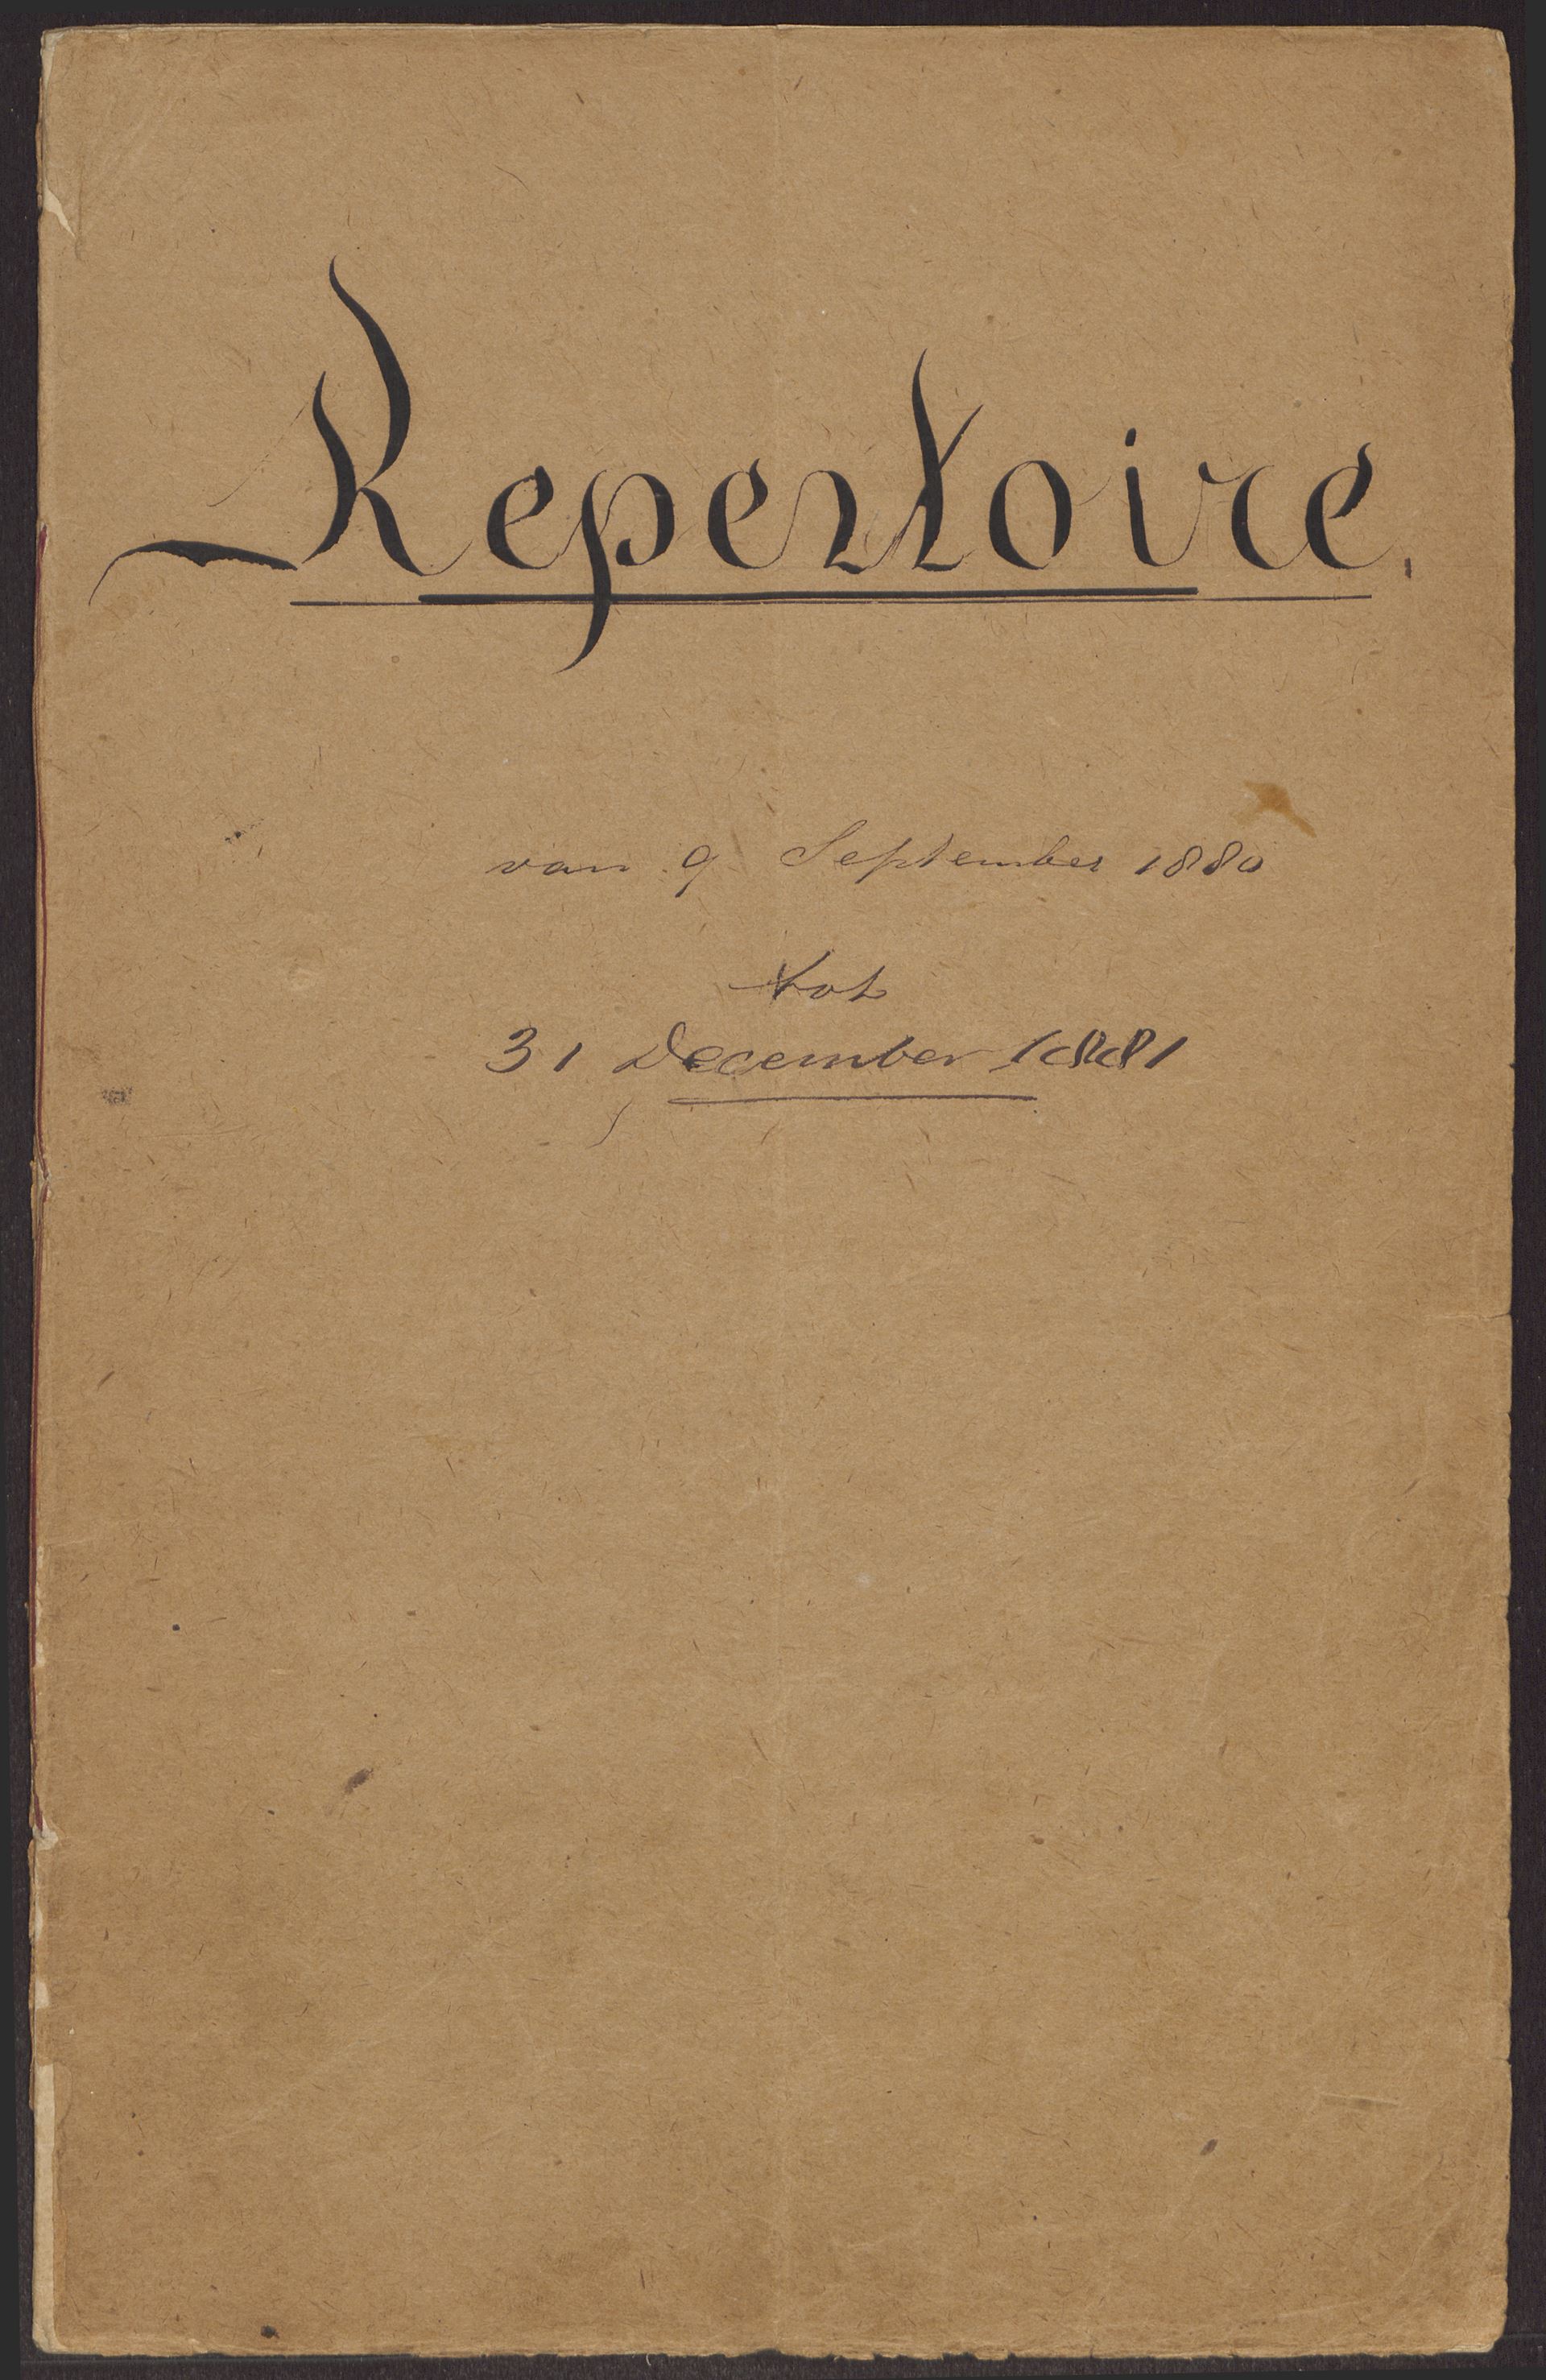 Repertoire.
van 9 September 1880
tot
31 December 1881